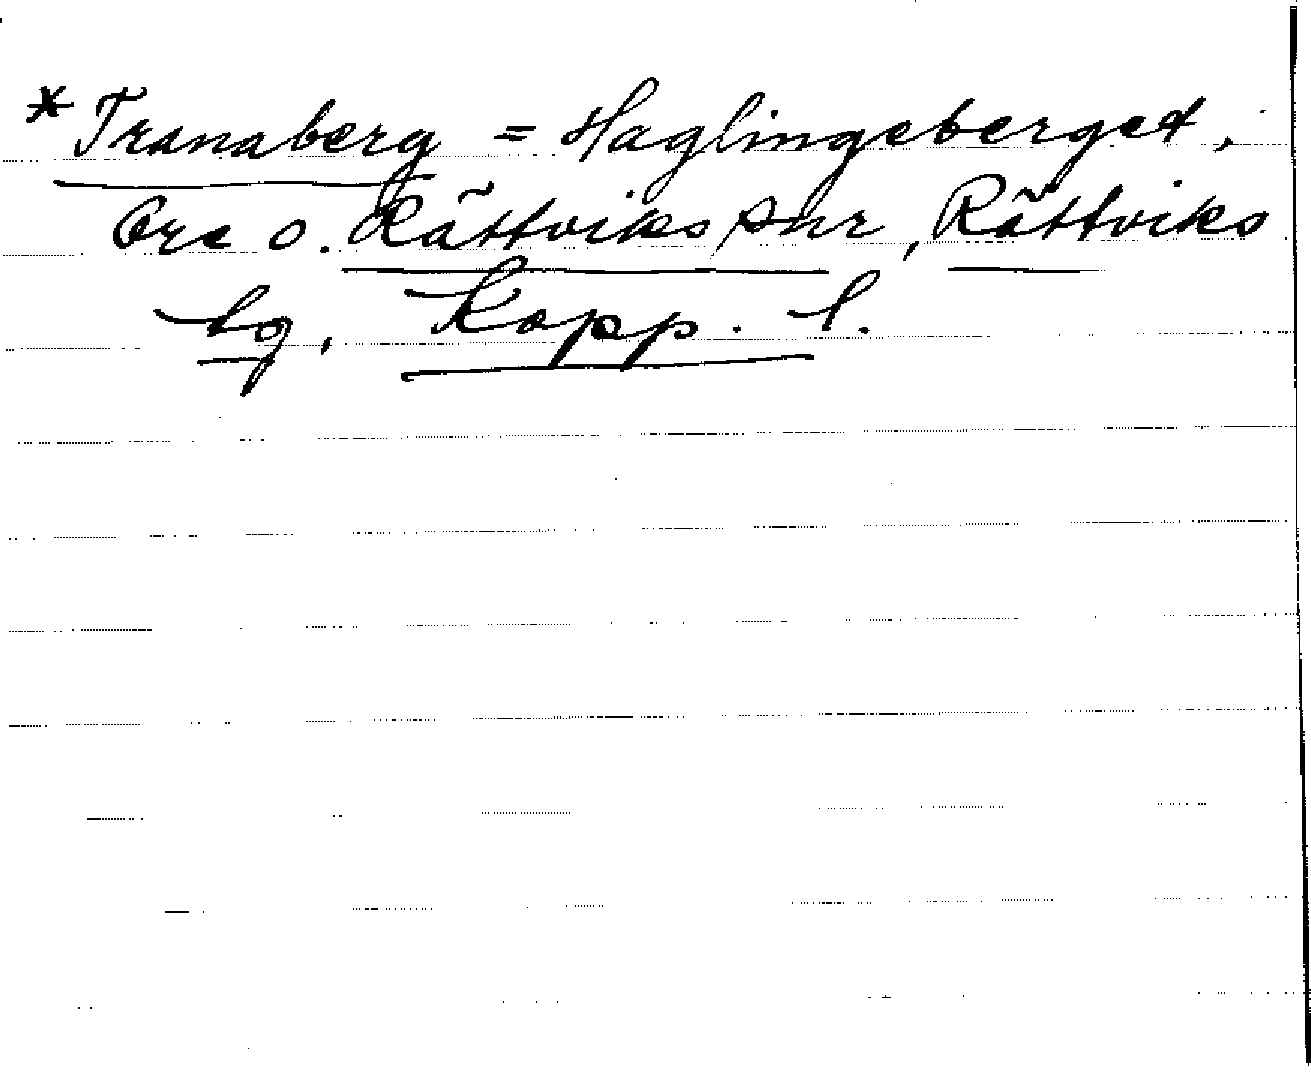 * Tranaberg = Haglingeberget,
Ore o. Rättviks snr, Rättviks
tg, Kopp. l.